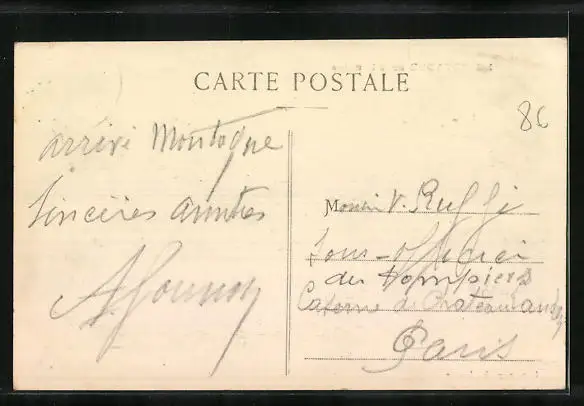 CARTE POSTALE
86
arrivé Montagne
Sincères amitiés
Monsieur V. Ruffi
Sous-officier
des Pompiers
Caserne de Chateaulandon
Paris